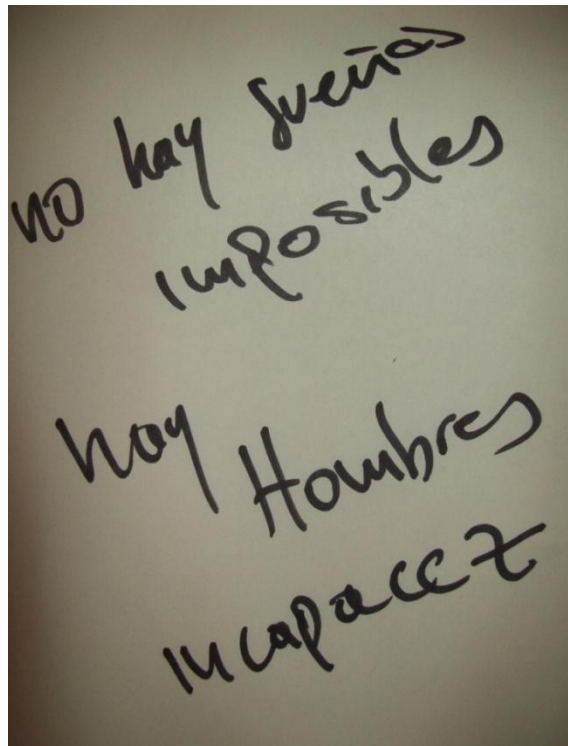 no hay sueños
imposibles
hay Hombres
incapacez